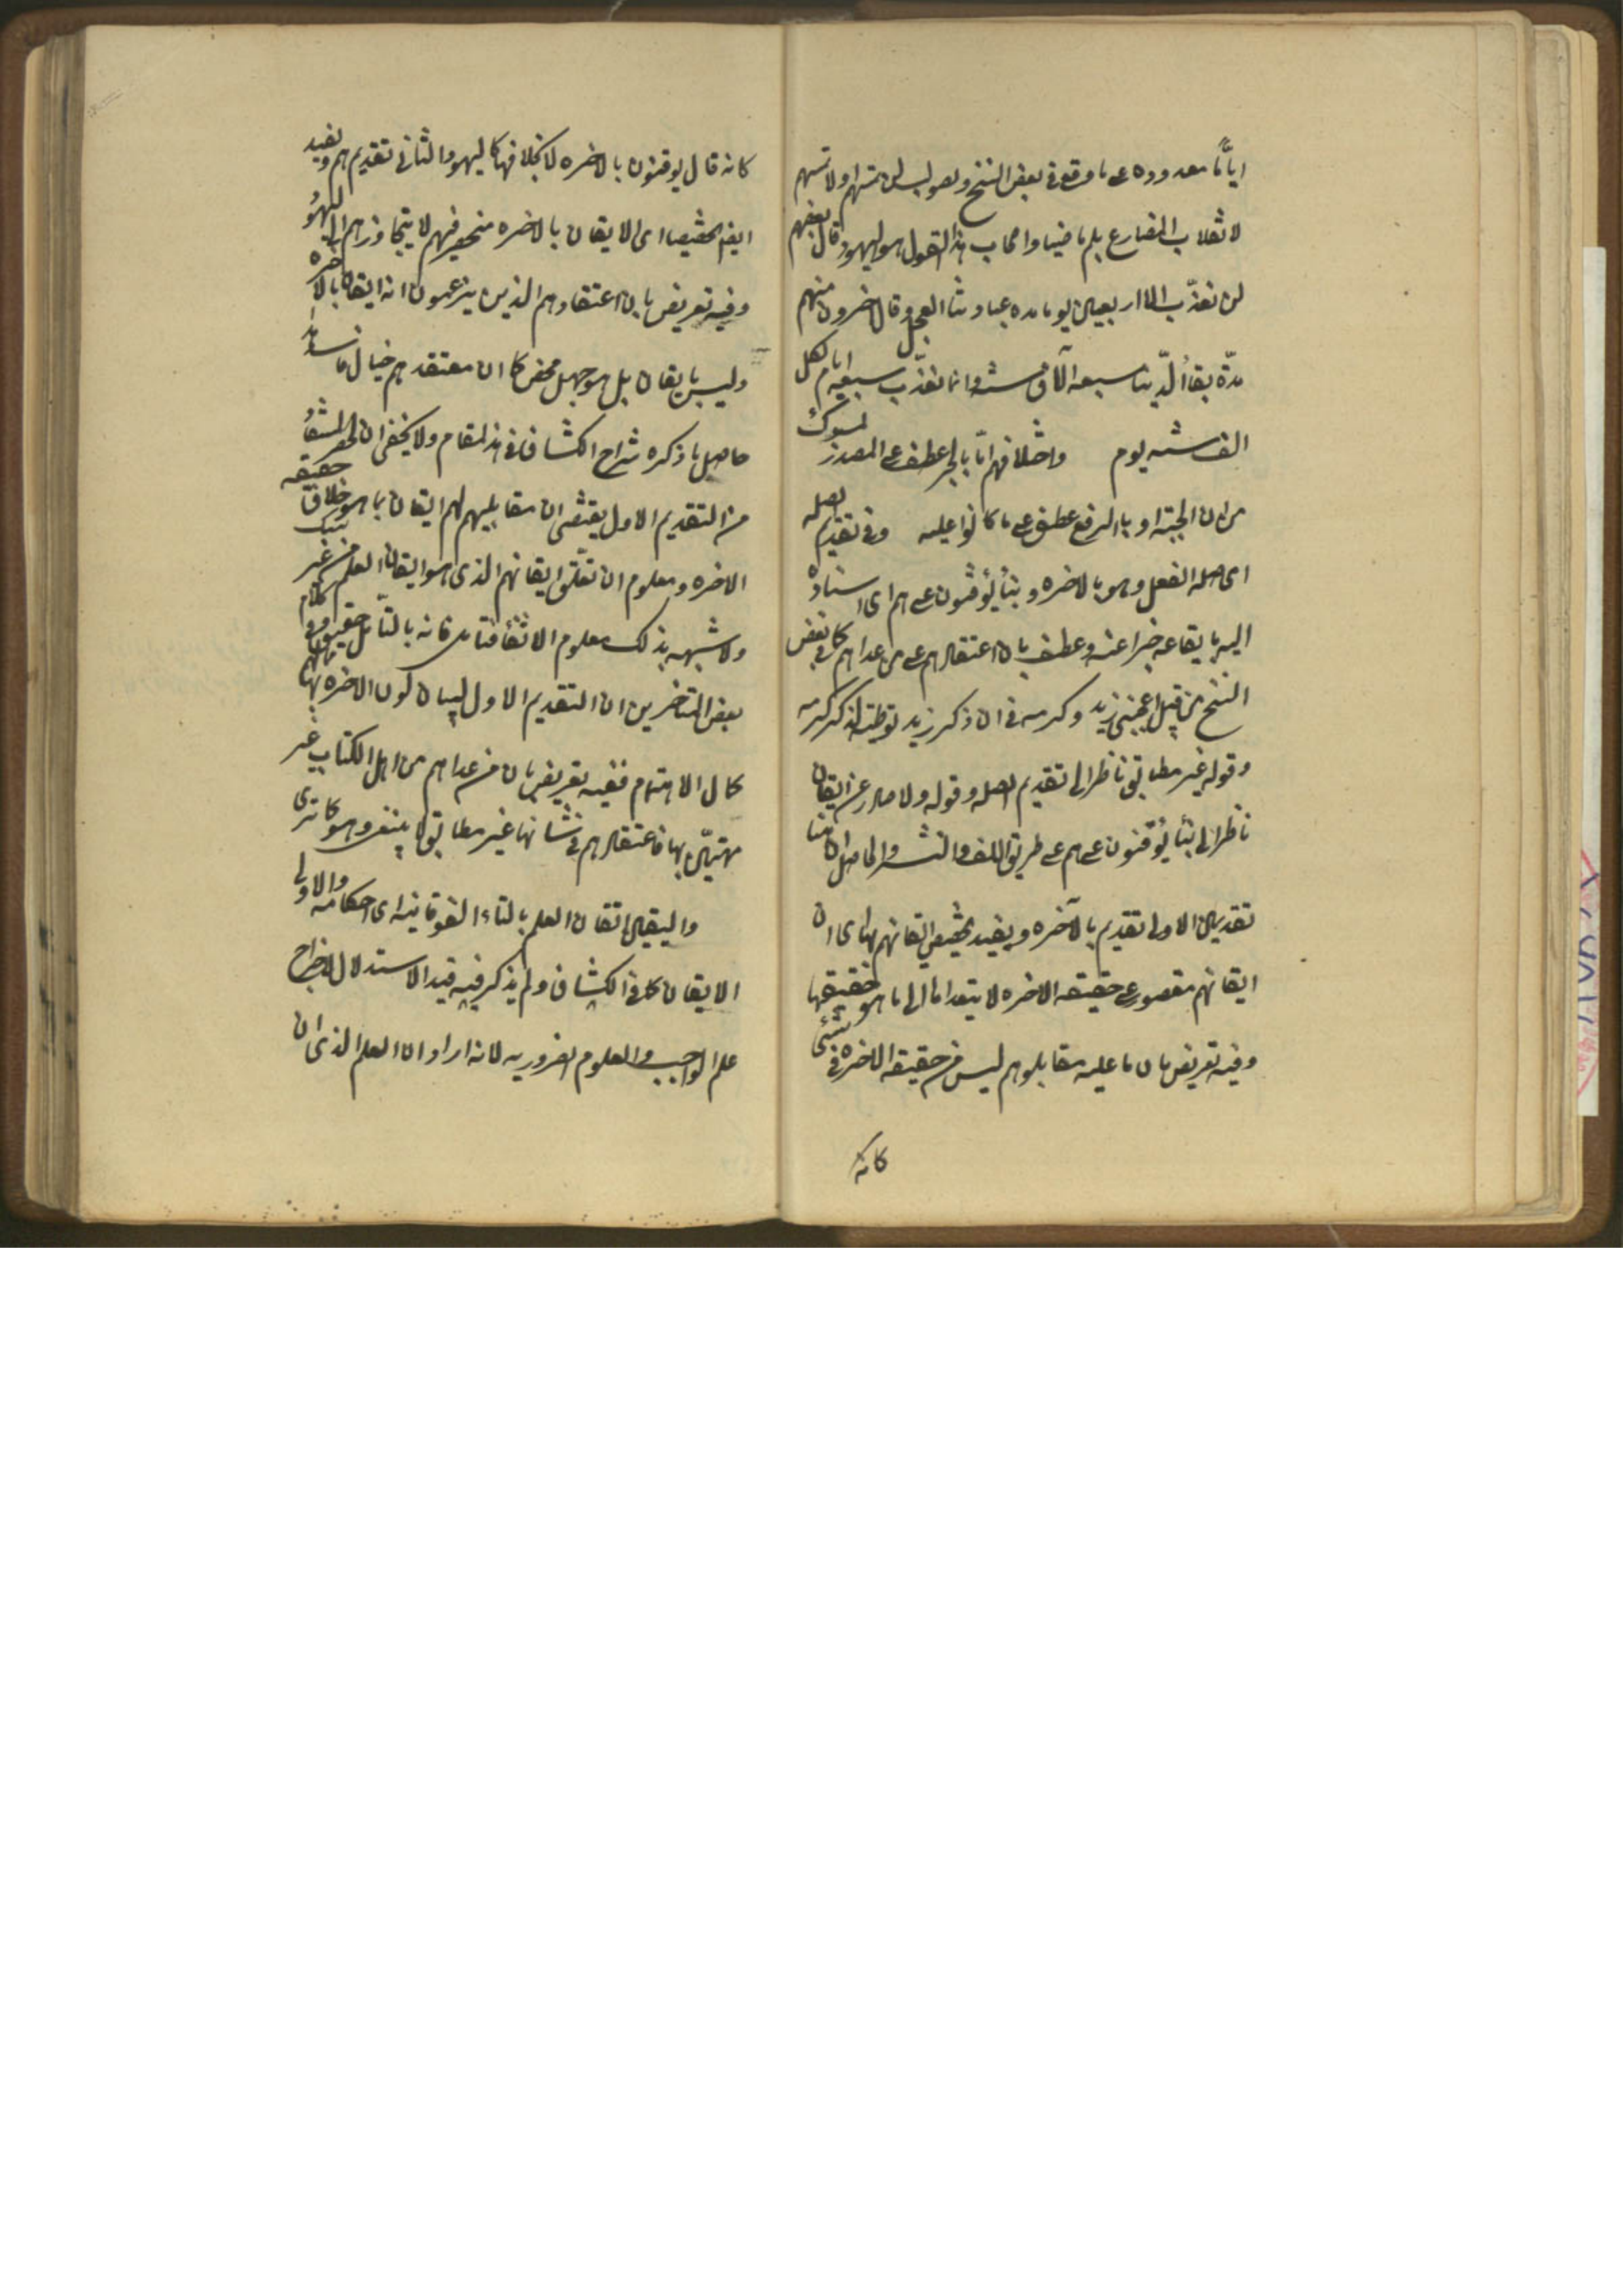 ايّاما معدوده على ما وقع فى بعض النسخ وصوابه لن تمسهم او لا تمسهم
لانقلاب المضارع بلم ماضيا واصحاب هذا القول هو اليهود قال بعضهم
لن نعذّب الا اربعين يوما مدة عبادتنا العجل وقال اخرون منهم
مدّة بقاء الدّنيا سبعة آلاف سنة وانما نعذّب سبعة ايام لكل
الف سنة يوم واختلافهم امّا بالجر عطف على المصدر
من ان الجنة او بالرفع عطف على ما كانوا عليه وفى تقديم الصلة
اى صلة الفعل وهو بالاخرة وبناء يؤقنون على هم اى اسناده
اليه بايقاعه خبرا عنه وعطف بان اعتقادهم على من عداهم كما فى بعض
النسخ من قبيل اعجبنى زيد وكرمه فى ان ذكر زيد توطئة لذكر كرمه
وقوله غير مطابق ناظر الى تقديم الصلة وقوله ولا صادر عن ايقان
ناظر الى بناء يؤقنون على هم على طريق اللف والنشر والحاصل ان هنا
تقديمين الاول تقديم بالآخرة ويفيد تخصيص ايقانهم بها اى ان
ايقانهم مقصور على حقيقة الاخرة لا يتعداها الى ما هو خلاف حقيقتها
وفيه تعريض بان ما عليه مقابلوهم ليس من حقيقة الاخرة فى شئ
كانه
كانه قال يوقنون بالاخرة لا بخلافها كاليهود والثانى تقديم هم ويفيد
ايضا تخصيصا اى الايقان بالاخرة منحصر فيهم لا يتجاوزهم الى اليهود
وفيه تعريض بان اعتقادهم الذين يزعمون انه ايقان بالاخرة
وليس بايقان بل هو جهل محض كما ان معتقدهم خيال فاسد هذا
حاصل ما ذكره شراح الكشاف فى هذا المقام ولا يخفى ان الحصر المستفاد
من التقديم الاول يقتضى ان مقابليهم لهم ايقان بما هو خلاف حقيقة
الاخرة ومعلوم ان تعلّق ايقانهم الذى هو ايقان العلم من غير شك
ولا شبهه بذلك معلوم الانتفاء فتامل فانه بالتأمل حقيق وفى كلام
بعض المتاخرين ان التقديم الاول لبيان كون الاخرة بها لهم
كمال الاهتمام ففيه تعريض بان من عداهم من اهل الكتاب غير
مهتمّين بها فاعتقادهم فى شانها غير مطابق لا ينفع وهو كما ترى
واليقين اتقان العلم بالتاء الفوقانية اى احكامه والاولى
الايقان كما فى الكشاف ولم يذكر فيه قيد الاستدلال لاخراج
علم الواجب والعلوم الضرورية لانه اراد ان العلم الذى ان